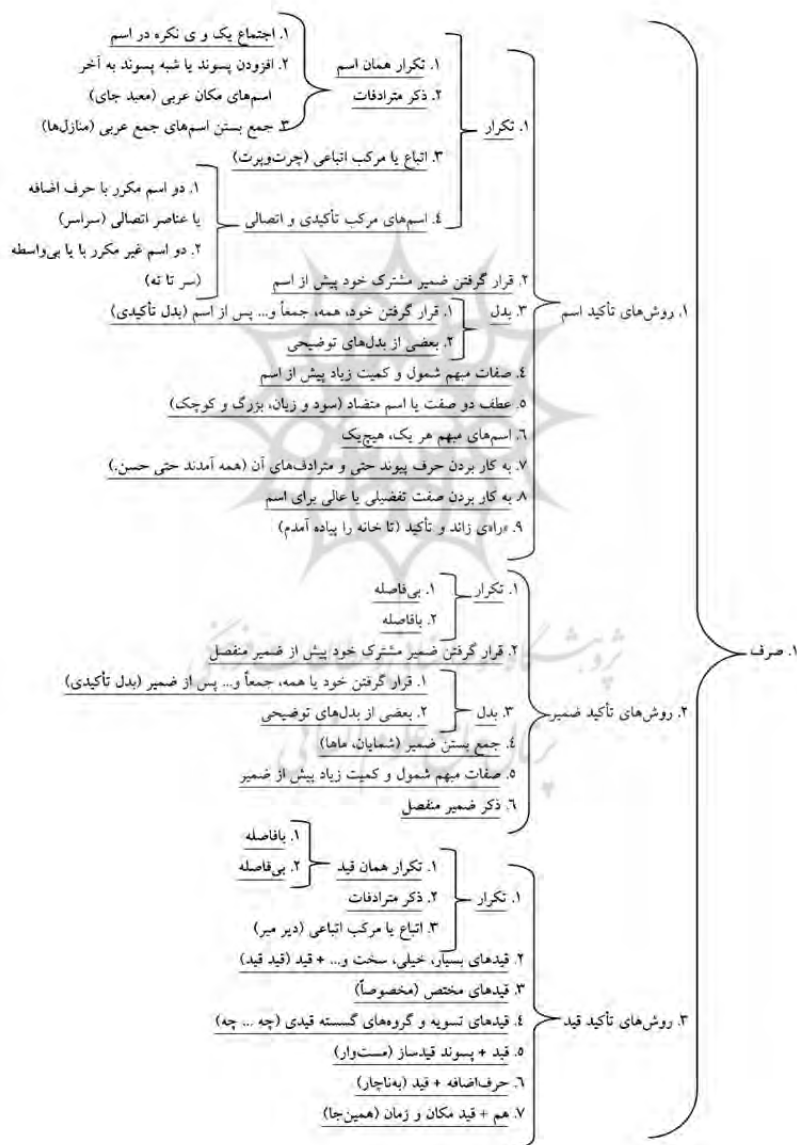 ۱. صرف
۱. روش‌های تأکید اسم
۱. تکرار
۱. تکرار همان اسم
۱. اجتماع یک و ی نکره در اسم
۲. افزودن پسوند یا شبه پسوند به آخر
اسم‌های مکان عربی (معبد جای)
۳. جمع بستن اسم‌های جمع عربی (منازل‌ها)
۲. ذکر مترادفات
۳. اتباع یا مرکب اتباعی (چرت‌وپرت)
۴. اسم‌های مرکب تأکیدی و اتصالی
۱. دو اسم مکرر با حرف اضافه
یا عناصر اتصالی (سراسر)
۲. دو اسم غیر مکرر با یا بی‌واسطه
(سر تا ته)
۲. قرار گرفتن ضمیر مشترک خود پیش از اسم
۳. بدل
۱. قرار گرفتن خود، همه، جمعاً و... پس از اسم (بدل تأکیدی)
۲. بعضی از بدل‌های توضیحی
۴. صفات مبهم شمول و کمیت زیاد پیش از اسم
۵. عطف دو صفت یا اسم متضاد (سود و زیان، بزرگ و کوچک)
۶. اسم‌های مبهم هر یک، هیچ‌یک
۷. به کار بردن حرف پیوند حتی و مترادف‌های آن (همه آمدند حتی حسن.)
۸. به کار بردن صفت تفضیلی یا عالی برای اسم
۹. «را»ی زائد و تأکید (تا خانه را پیاده آمدم)
۲. روش‌های تأکید ضمیر
۱. تکرار
۱. بی‌فاصله
۲. بافاصله
۲. قرار گرفتن ضمیر مشترک خود پیش از ضمیر منفصل
۳. بدل
۱. قرار گرفتن خود یا همه، جمعاً و... پس از ضمیر (بدل تأکیدی)
۲. بعضی از بدل‌های توضیحی
۴. جمع بستن ضمیر (شمایان، ماها)
۵. صفات مبهم شمول و کمیت زیاد پیش از ضمیر
۶. ذکر ضمیر منفصل
۳. روش‌های تأکید قید
۱. تکرار
۱. تکرار همان قید
۱. بافاصله
۲. بی‌فاصله
۲. ذکر مترادفات
۳. اتباع یا مرکب اتباعی (دیر میر)
۲. قیدهای بسیار، خیلی، سخت و... + قید (قید قید)
۳. قیدهای مختص (مخصوصاً)
۴. قیدهای تسویه و گروه‌های گسسته قیدی (چه ... چه)
۵. قید + پسوند قیدساز (مست‌وار)
۶. حرف‌اضافه + قید (به‌ناچار)
۷. هم + قید مکان و زمان (همین‌جا)